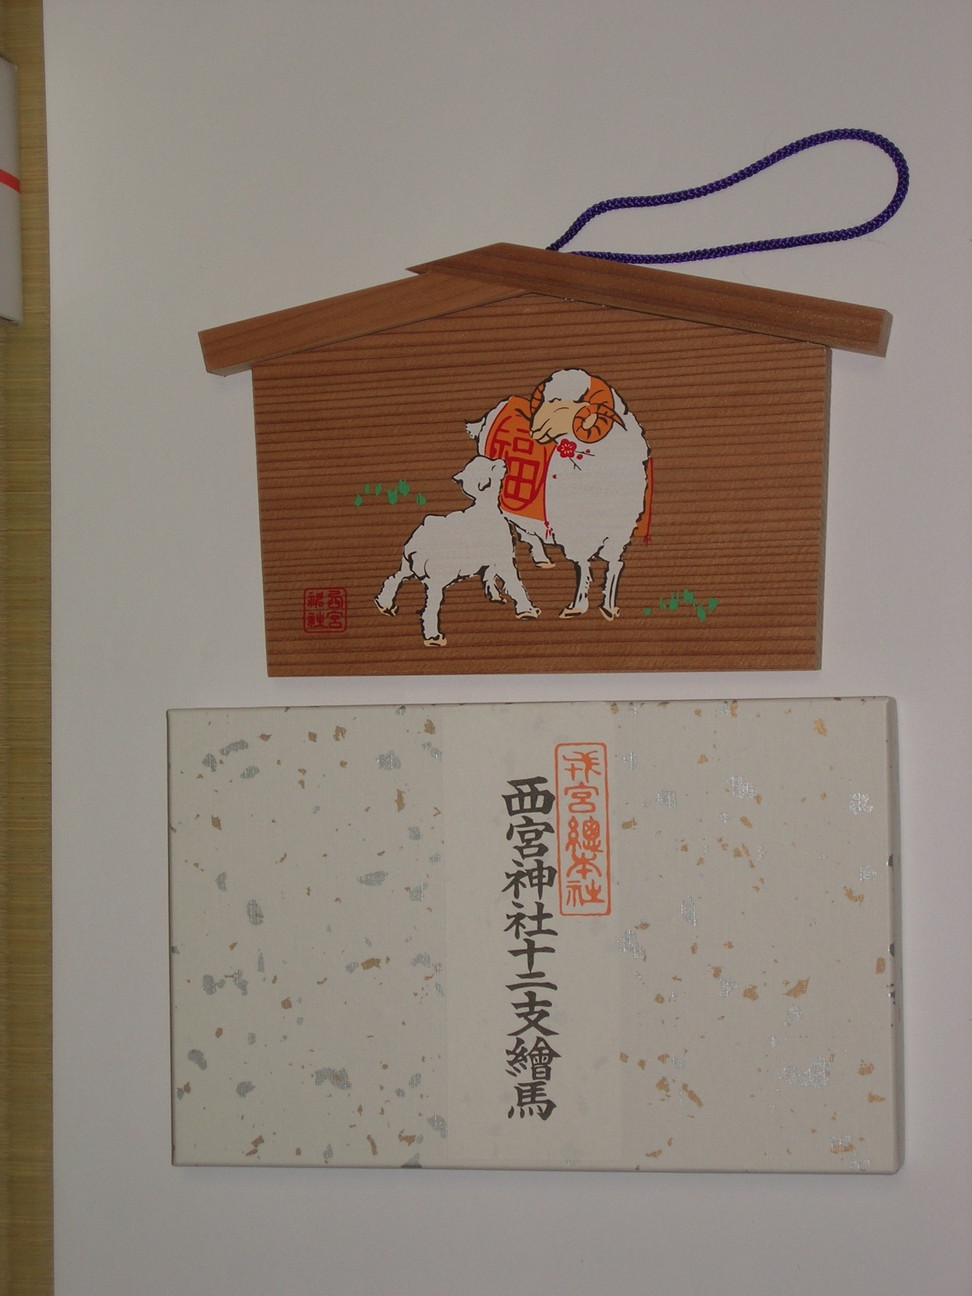 福
西宮
神社
戎宮總本社
西宮神社十二支繪馬